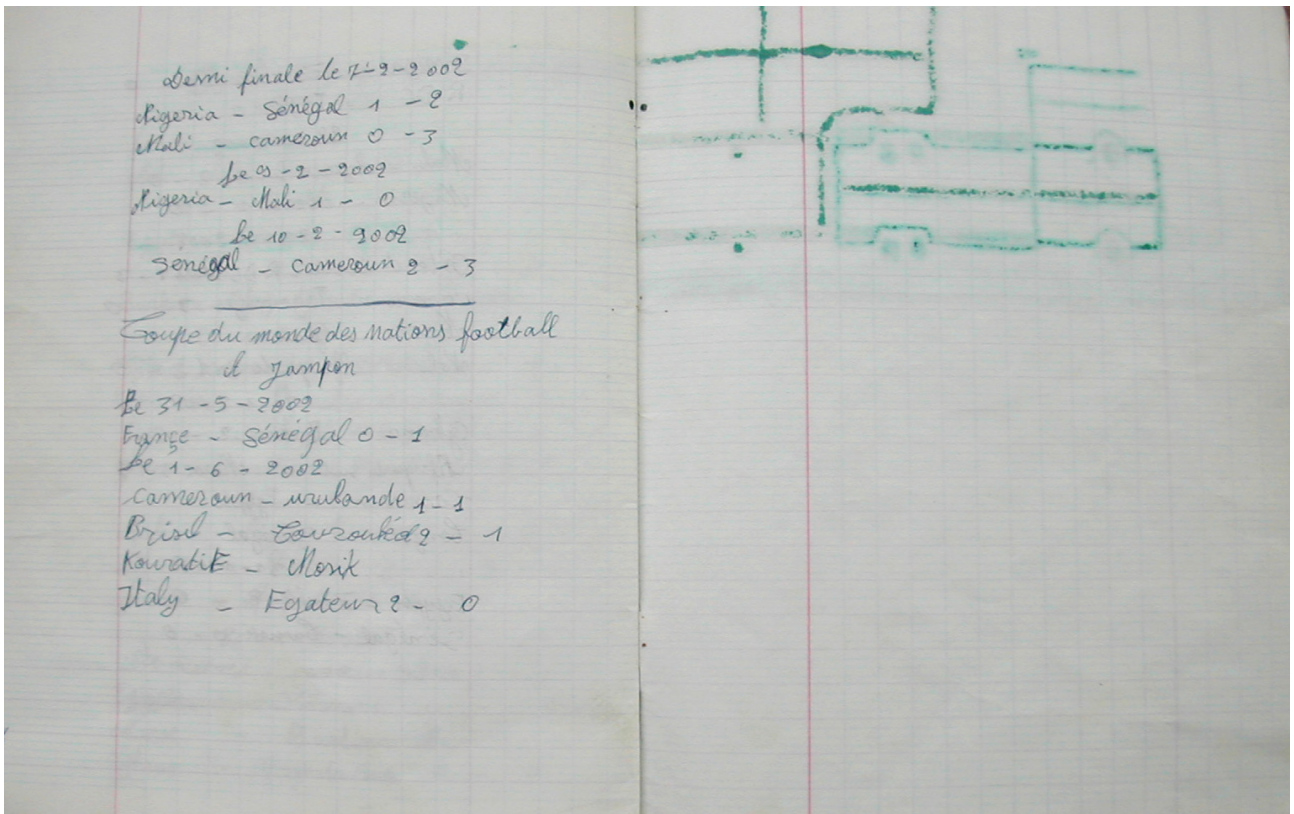 Demi finale le 7-2-2002
Nigeria - Sénégal 1 - 2
Mali - cameroun 0 - 3
Le 9 - 2 - 2002
Nigeria - Mali 1 - 0
Le 10 - 2 - 2002
Sénégal - Cameroun 2 - 3
Coupe du monde des Nations football
et Jampon
Le 31 - 5 - 2002
France - Sénégal 0 - 1
Le 1 - 6 - 2002
Cameroun - urulande 1 - 1
Brisil - Tourouked 2 - 1
KouratiE - Mosik
Italy - Egateur 2 - 0